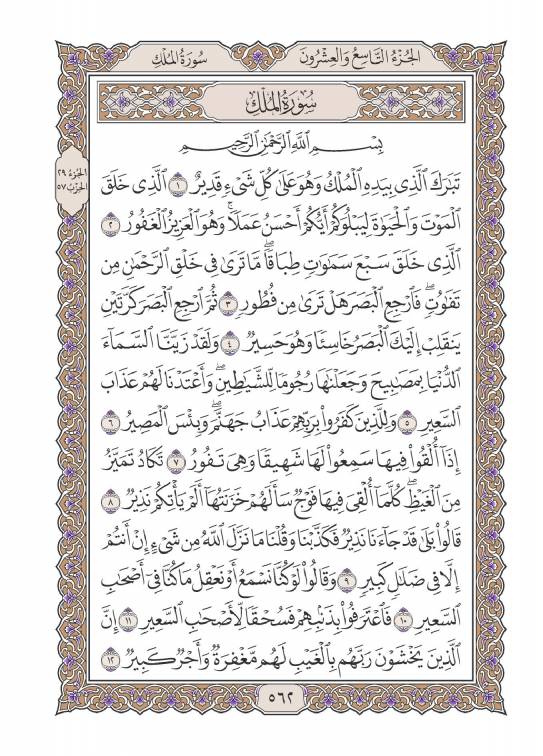 الجُزْءُ التَّاسِعُ وَالعِشْرُونَ
سُورَةُ المُلْكِ
سُورَةُ المُلْكِ
بِسْمِ اللَّهِ الرَّحْمَٰنِ الرَّحِيمِ
الجزء ٢٩
الحزب ٥٧
تَبَٰرَكَ ٱلَّذِى بِيَدِهِ ٱلْمُلْكُ وَهُوَ عَلَىٰ كُلِّ شَىْءٍ قَدِيرٌ ١ ٱلَّذِى خَلَقَ
ٱلْمَوْتَ وَٱلْحَيَوٰةَ لِيَبْلُوَكُمْ أَيُّكُمْ أَحْسَنُ عَمَلًا ۚ وَهُوَ ٱلْعَزِيزُ ٱلْغَفُورُ ٢
ٱلَّذِى خَلَقَ سَبْعَ سَمَٰوَٰتٍ طِبَاقًا ۖ مَّا تَرَىٰ فِى خَلْقِ ٱلرَّحْمَٰنِ مِن
تَفَٰوُتٍ ۖ فَٱرْجِعِ ٱلْبَصَرَ هَلْ تَرَىٰ مِن فُطُورٍ ٣ ثُمَّ ٱرْجِعِ ٱلْبَصَرَ كَرَّتَيْنِ
يَنقَلِبْ إِلَيْكَ ٱلْبَصَرُ خَاسِئًا وَهُوَ حَسِيرٌ ٤ وَلَقَدْ زَيَّنَّا ٱلسَّمَآءَ
ٱلدُّنْيَا بِمَصَٰبِيحَ وَجَعَلْنَٰهَا رُجُومًا لِّلشَّيَٰطِينِ ۖ وَأَعْتَدْنَا لَهُمْ عَذَابَ
ٱلسَّعِيرِ ٥ وَلِلَّذِينَ كَفَرُوا۟ بِرَبِّهِمْ عَذَابُ جَهَنَّمَ ۖ وَبِئْسَ ٱلْمَصِيرُ ٦
إِذَآ أُلْقُوا۟ فِيهَا سَمِعُوا۟ لَهَا شَهِيقًا وَهِىَ تَفُورُ ٧ تَكَادُ تَمَيَّزُ
مِنَ ٱلْغَيْظِ ۖ كُلَّمَآ أُلْقِىَ فِيهَا فَوْجٌ سَأَلَهُمْ خَزَنَتُهَآ أَلَمْ يَأْتِكُمْ نَذِيرٌ ٨
قَالُوا۟ بَلَىٰ قَدْ جَآءَنَا نَذِيرٌ فَكَذَّبْنَا وَقُلْنَا مَا نَزَّلَ ٱللَّهُ مِن شَىْءٍ إِنْ أَنتُمْ
إِلَّا فِى ضَلَٰلٍ كَبِيرٍ ٩ وَقَالُوا۟ لَوْ كُنَّا نَسْمَعُ أَوْ نَعْقِلُ مَا كُنَّا فِىٓ أَصْحَٰبِ
ٱلسَّعِيرِ ١٠ فَٱعْتَرَفُوا۟ بِذَنۢبِهِمْ فَسُحْقًا لِّأَصْحَٰبِ ٱلسَّعِيرِ ١١ إِنَّ
ٱلَّذِينَ يَخْشَوْنَ رَبَّهُم بِٱلْغَيْبِ لَهُم مَّغْفِرَةٌ وَأَجْرٌ كَبِيرٌ ١٢
٥٦٢